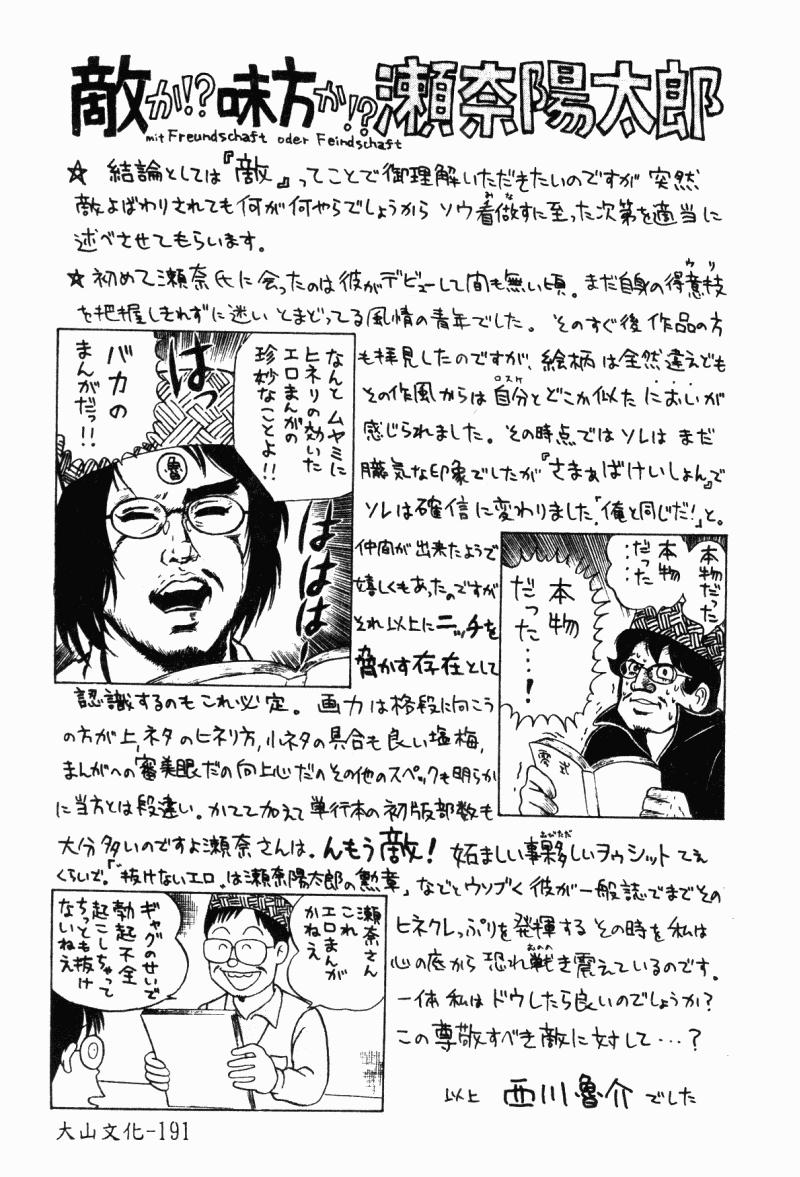 敵か!?味方か!?瀬奈陽太郎
mit Freundschaft oder Feindschaft
☆ 結論としては『敵』ってことで御理解いただきたいのですが 突然
敵よばわりされても何が何やらでしょうから ソウ看做すに至った次第を適当に
みな
述べさせてもらいます。
☆初めて瀬奈氏に会ったのは彼がデビューして間も無い頃。まだ自身の得意技
ウリ
を把握しきれずに迷い とまどってる風情の青年でした。そのすぐ後 作品の方
も拝見したのですが、絵柄は全然違えども
その作風からは自分とどこか似た においが
ロスケ
感じられました。その時点ではソレは まだ
朧気な印象でしたが『さまぁばけいしょん』で
ソレは確信に変わりました「俺と同じだ!」と。
なんと ムヤミに
ヒネリの効いた
エロまんがの
珍妙なことよ!!
はっ
はは
はは
バカの
まんがだっ!!
魯
仲間が出来たようで
嬉しくもあったのですが
それ以上にニッチを
脅かす存在として
本物だった
本物
だった
‥‥
本物
だった…!
零式
認識するのもこれ必定。 画力は格段に向こう
の方が上、ネタのヒネリ方、小ネタの具合も良い塩梅,
まんがへの審美眼だの向上心だのその他のスペックも明らか
に当方とは段違い。かてて加えて単行本の初版部数も
大分多いのですよ瀬奈さんは。んもう敵! 妬ましい事夥しいヲゥシットてえ
おびただ
くらいで。「"抜けないエロ"は瀬奈陽太郎の勲章」などとウソブく彼が一般誌でまでその
ヒネクレっぷりを発揮する その時を 私は
心の底から 恐れ戦き震えているのです。
おのの
一体 私は ドウしたら良いのでしょうか?
この尊敬すべき敵に対して…?
瀬奈さん
これ
エロまんが
かねえ
ギャグのせいで
勃起不全
起こしちゃって
ちっとも抜け
ないねえ
以上 西川魯介 でした
大山文化-191